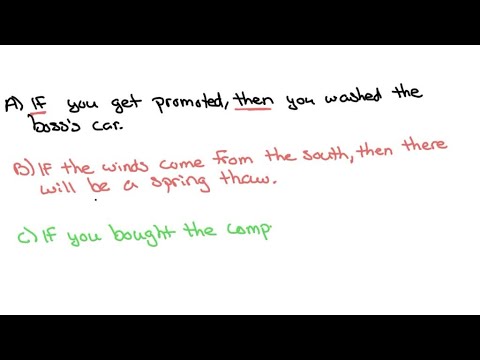 A) If you get promoted, then you washed the
boss's car.
B) If the winds come from the south, then there
will be a spring thaw.
C) If you bought the comp